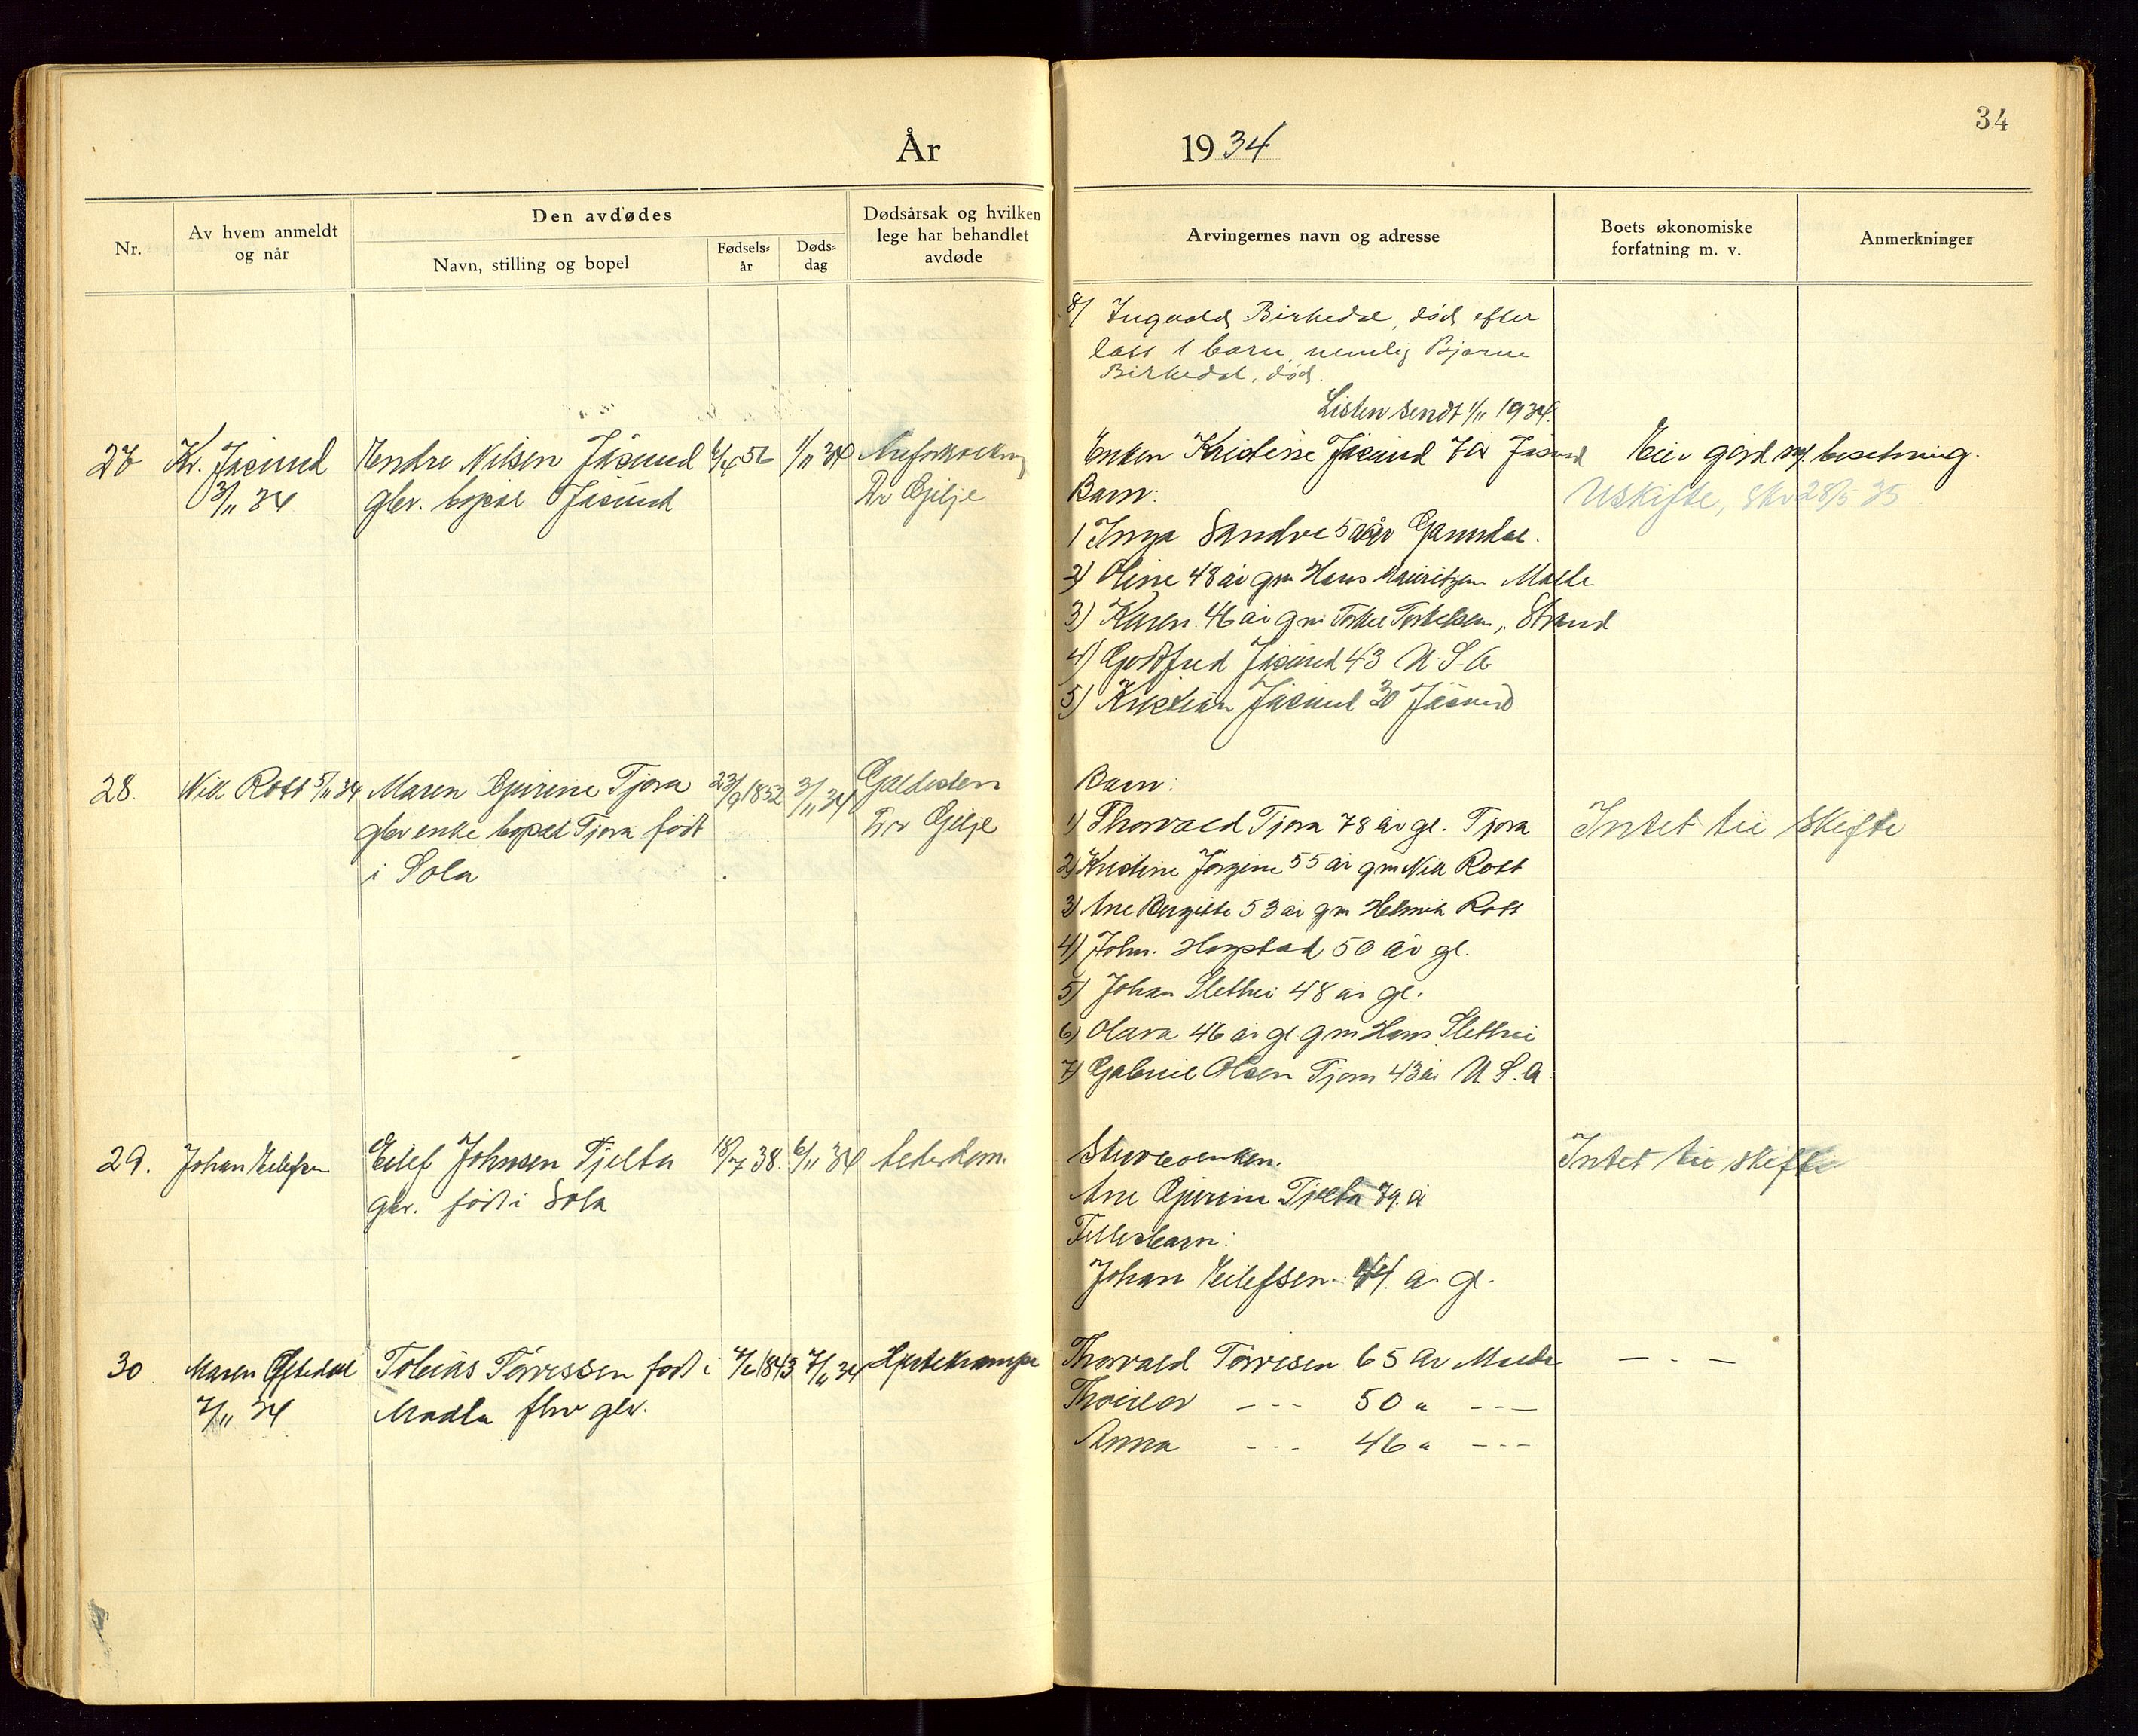 34
År 1934
Nr.
Av hvem anmeldt og når
Den avdødes
Navn, stilling og bopel
Fødsels= år
Døds= dag
Dødsårsak og hvilken lege har behandlet avdøde
Arvingernes navn og adresse
Boets økonomiske forfatning m. v.
Anmerkninger
8/ Ingvald Birkedal, död efter
lass 1 barn, nemlig Bjarne
Birkedal, död.
Listen sendt 1/11 1934.
27 Kr. Jåsund Endre Nilsen Jåsund 56 1/11 34
3/11 34 gbr. bopæl Jåsund Dr Gilje
Enken Kristine Jåsund Jåsund Eier gård m/ besetning.
Barn: Uskifte, Skr 28/5 35
1 Inga Sandve år Ganndal.
2) Oline 48 år gm Hans Mauritzen Malle
3) Karen 46 år gm Torkel Torkelsen, Strand
4) Gotfred Jåsund 43 U.S.A
5) Kristian Jåsund 30 Jåsund
28. Nils Rott 5/11 34 Maren Gurine Tjora 23/9 1852 3/11 34
gbr enke bopæl Tjora født Dr Gilje
i Sola
Barn:
1) Thorvald Tjora 78 år gl. Tjora Intet til skifte
2) Kristine Jørgine 55 år gm Nils Rott
3) Ane Bergitte 53 år gm Helmik Rott
4) John. Hogstad 50 år gl.
5) Johan Slethei 48 år gl.
6) Olava 46 år gl gm Hans Slethei
7) Gabriel Olsen Tjora 43 år U.S.A.
29. Johan Eilefsen Eilef Johnsen Tjelta 18/7 38. 6/11 34 Alderdom.
gbr. født i Sola
Intet til skifte
Ane Gurine Tjelta 79. år
Fellesbarn:
Johan Eilefsen. 44. år gl.
30 Maren Tobias Tørressen født i 1843 7/11 34 Hjertekrampe
7/11 34 Madla fhv gbr.
Thorvald Tørresen 65 år Madla — . —
--- 50 " ---
Anna --- 46 " ---